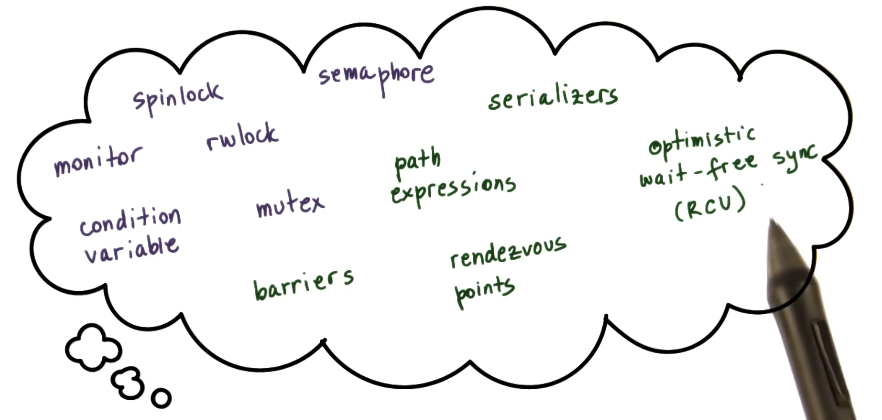 spinlock
semaphore
serializers
monitor
rwlock
path
expressions
optimistic
wait-free sync
(RCU)
condition
variable
mutex
barriers
rendezvous
points